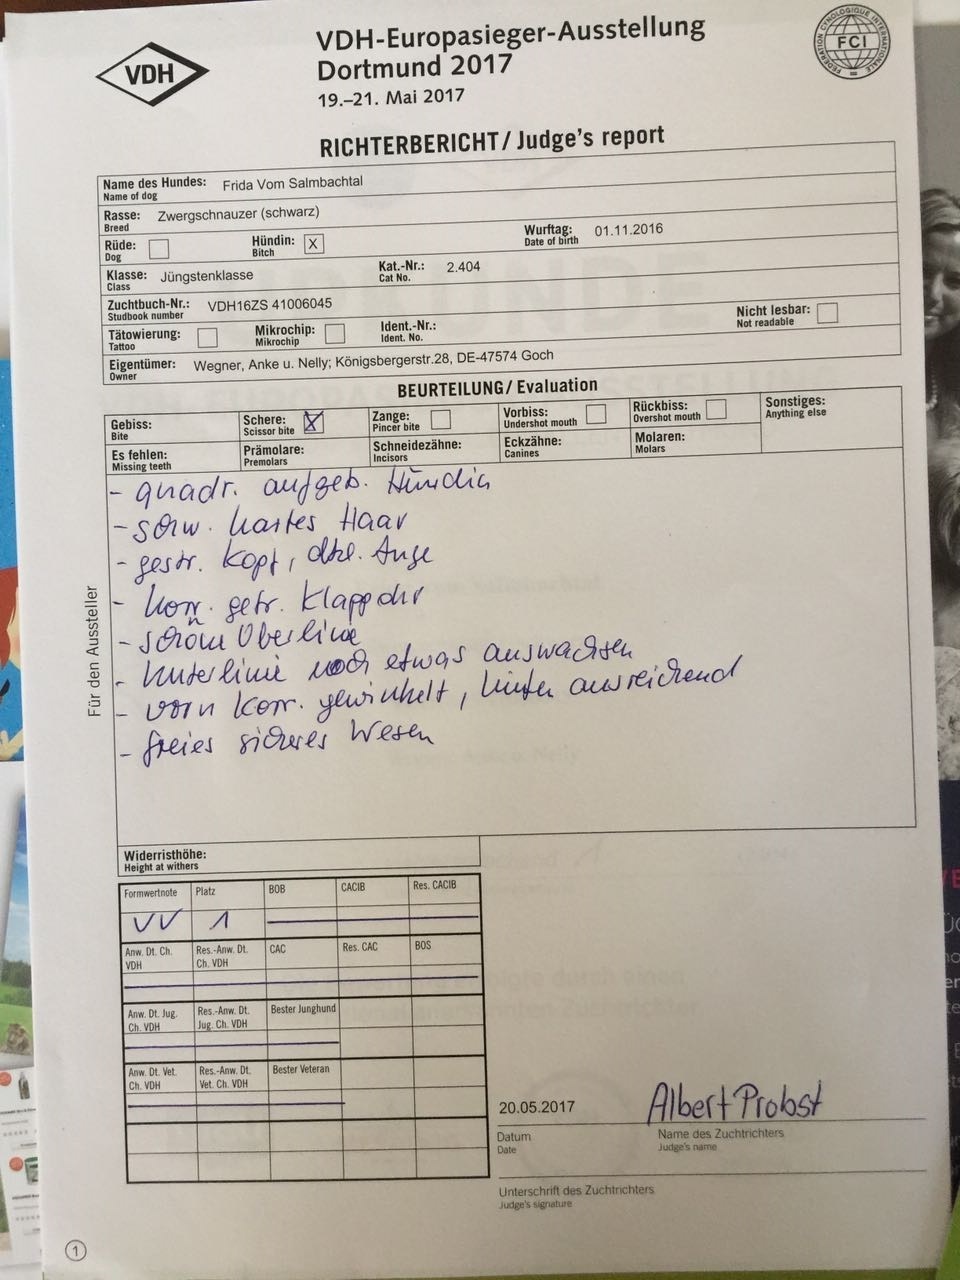 VDH
VDH-Europasieger-Ausstellung
Dortmund 2017
19.–21. Mai 2017
FCI
FEDERATION CYNOLOGIQUE INTERNATIONALE
RICHTERBERICHT/ Judge's report
Name des Hundes: Frida Vom Salmbachtal
Name of dog
Rasse: Zwergschnauzer (schwarz)
Breed
Rüde: Hündin: X Wurftag: 01.11.2016
Dog Bitch Date of birth
Klasse: Jüngstenklasse Kat.-Nr.: 2.404
Class Cat No.
Zuchtbuch-Nr.: VDH16ZS 41006045
Studbook number
Tätowierung: Mikrochip: Ident.-Nr.: Nicht lesbar:
Tattoo Mikrochip Ident. No. Not readable
Eigentümer: Wegner, Anke u. Nelly; Königsbergerstr.28, DE-47574 Goch
Owner
BEURTEILUNG/ Evaluation
Gebiss: Schere: X Zange: Vorbiss: Rückbiss: Sonstiges:
Bite Scissor bite Pincer bite Undershot mouth Overshot mouth Anything else
Es fehlen: Prämolare: Schneidezähne: Eckzähne: Molaren:
Missing teeth Premolars Incisors Canines Molars
- quadr. aufgeb. Hündin
- schw. hartes Haar
- gestr. Kopf, dkl. Auge
- korr. getr. Klappohr
- schöne Oberlinie
- Unterlinie noch etwas auswachsen
- vorn korr. gewinkelt, hinten ausreichend
- freies sicheres Wesen
Für den Aussteller
Widerristhöhe:
Height at withers
Formwertnote Platz BOB CACIB Res. CACIB
VV 1
Anw. Dt. Ch. Res.-Anw. Dt. CAC Res. CAC BOS
VDH Ch. VDH
Anw. Dt. Jug. Res.-Anw. Dt. Bester Junghund
Ch. VDH Jug. Ch. VDH
Anw. Dt. Vet. Res.-Anw. Dt. Bester Veteran
Ch. VDH Vet. Ch. VDH
20.05.2017 Albert Probst
Datum Name des Zuchtrichters
Date Judge's name
Unterschrift des Zuchtrichters
Judge's signature
1